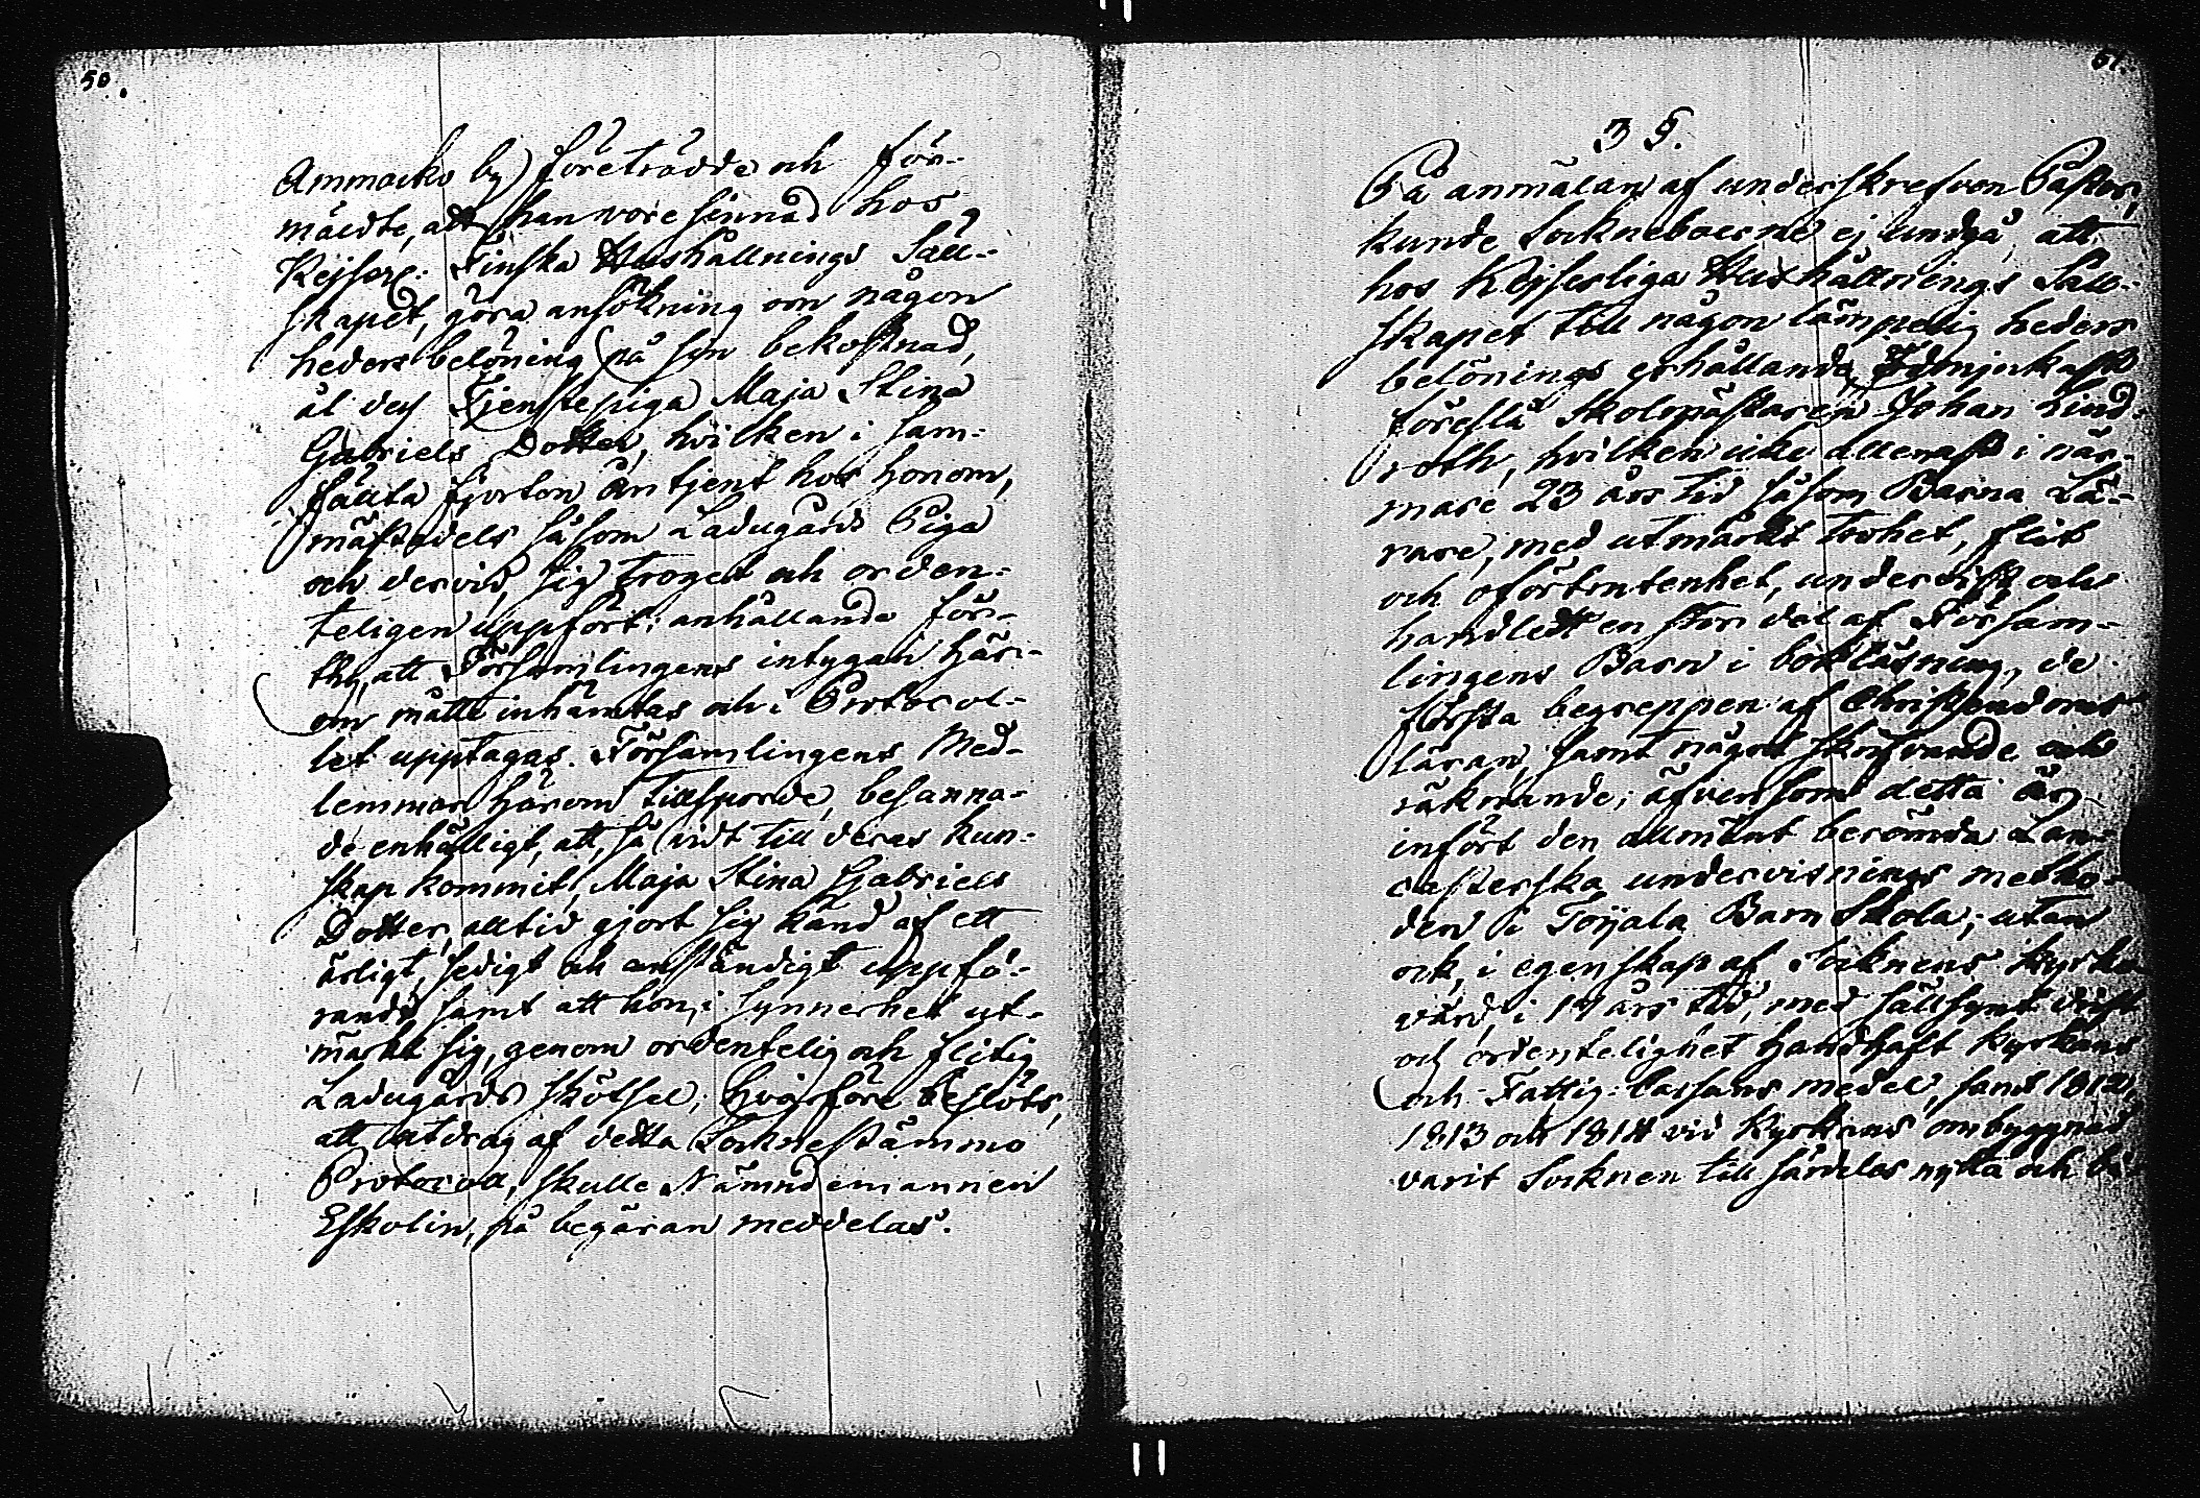 50.
Ammacko by) företrädde och för-
mäldte, att han vore sinnad hos
Kejserl: Finska Hushållnings Säll-
skapet, göra ansökning om någon
heders belöning på sin bekostnad,
åt des Tjenstepiga Maja Stina
Gabriels Dotter, hvilken i sam-
fällta fjorton år tjent hos honom,
mästadels såsom Ladugårds Piga
och dervid, sig troget och orden-
teligen uppfört; anhållande för-
thy, att Församlingens intygan här-
om måtte inhämtas och i Protocol-
let upptagas. Församlingens Med-
lemmar härom tillsporde, besanna-
de enhälligt, att, så vidt till deras kun-
skap kommit, Maja Stina Gabriels
Dotter, alltid gjort sig känd af ett
ärligt, sedigt och anständigt uppfö-
rande samt att hon, i synnerhet ut-
märkt sig, genom ordentelig och flitig
Ladugårds skötsel; hvarföre beslöts,
att utdrag af detta Socknestämmo
Protocoll, skulle Nämndemannen
Eskolin, på begäran meddelas.
51.
3 §.
På anmälan af underskrefven Pastor,
kunde Sockneboerne ej undgå, att
hos Kejserliga Hushållnings Säll-
skapet till någon lämpelig heders
belönings erhållande, ödmjukast
föreslå Skolmästaren Johan Lind-
roth, hvilken icke allenast i när-
mare 23 års tid såsom Barna Lä-
rare, med utmärkt trohet, flit
och oförtrutenhet, undervist och
handledt en stor del af Försam-
lingens Barn i bokläsning, de
första begreppen af Christendoms
läran, samt något skrifvande och
räknande; äfvensom detta år
infört den allmänt berömda Lan-
casterska undervisnings metho-
den i Toijala Barn Skola; utan
ock, i egenskap af Socknens Kyrko
värd, i 17 års tid, med sällsynt drift
och ordentelighet handhaft Kyrkans
och Fattig-Cassans medel, samt 1812,
1813 och 1814 vid Kyrkans ombyggnad
varit Socknen till särdeles nytta och